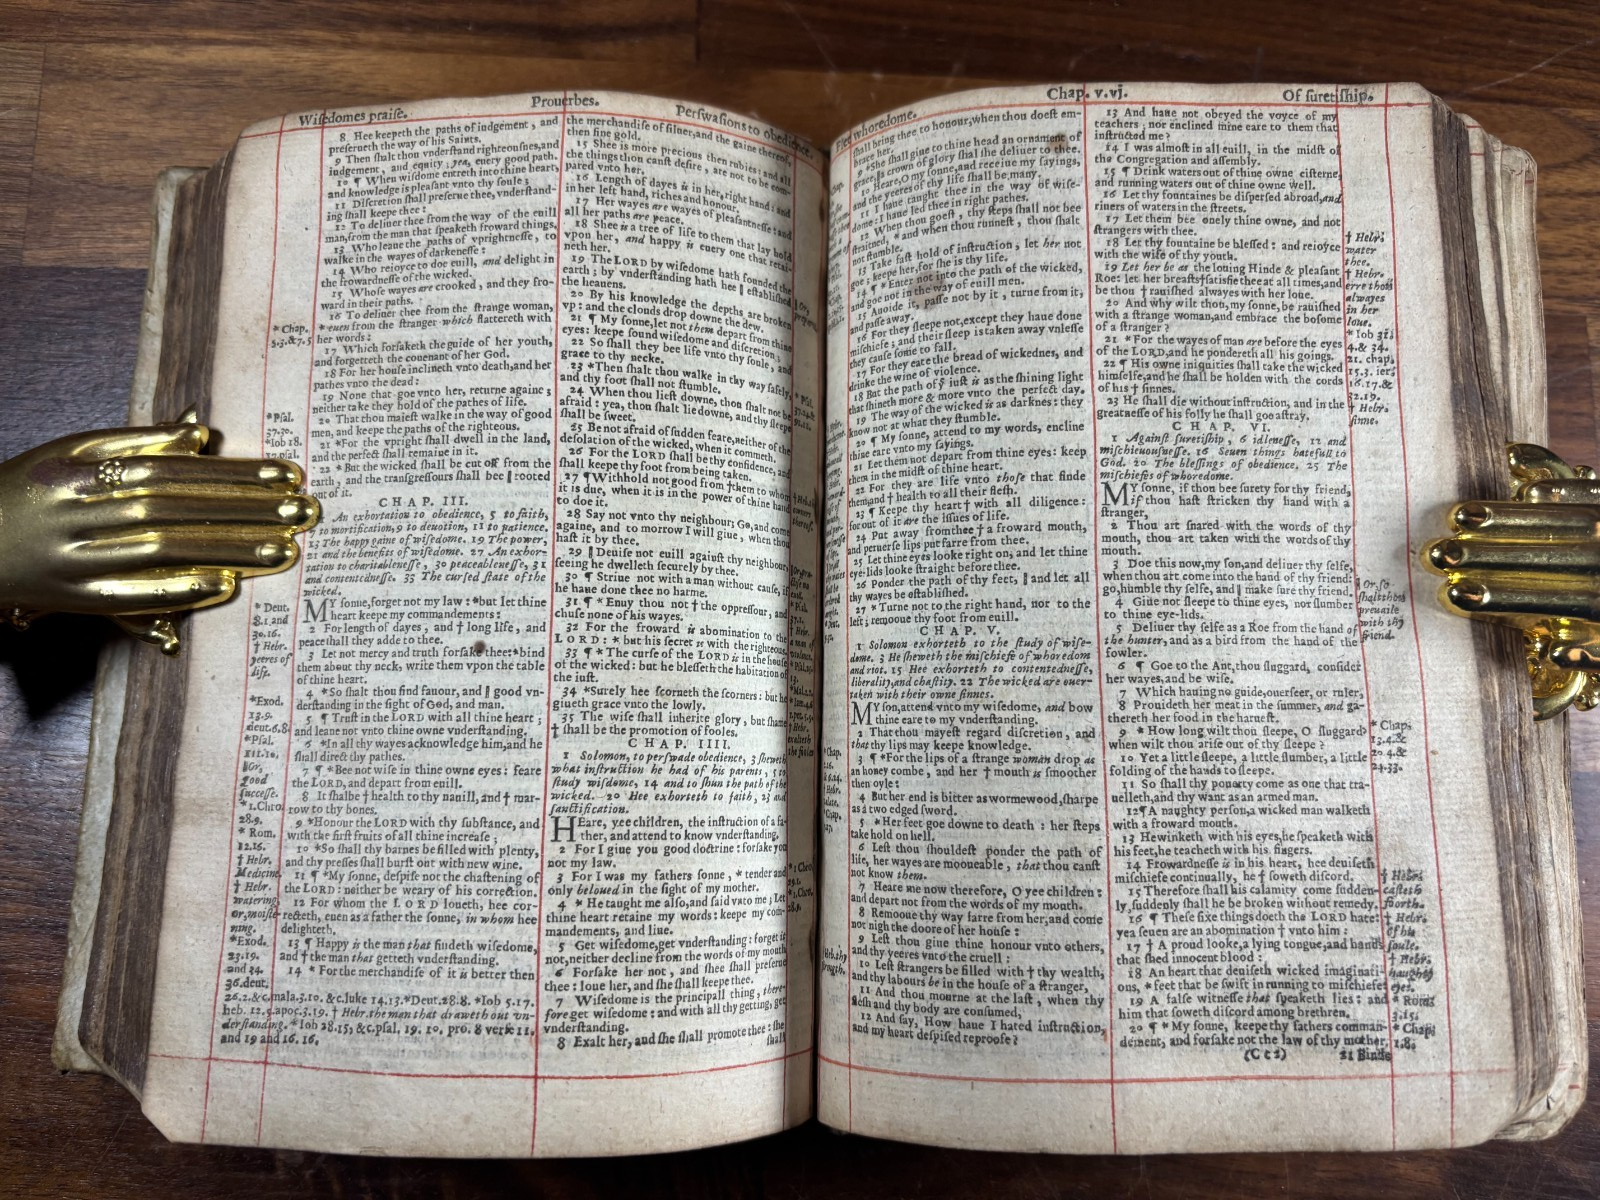 Wisedomes praise.
Prouerbes.
Perswasions to obedience.
8 Hee keepeth the paths of iudgement, and
preserueth the way of his Saints.
9 Then shalt thou vnderstand righteousnes, and
iudgement, and equity; yea, euery good path.
10 ¶ When wisdome entreth into thine heart,
and knowledge is pleasant vnto thy soule;
11 Discretion shall preserue thee, vnderstand-
ing shall keepe thee:
12 To deliuer thee from the way of the euill
man, from the man that speaketh froward things,
13 Who leaue the paths of vprightnesse, to
walke in the wayes of darkenesse:
14 Who reioyce to doe euill, and delight in
the frowardnesse of the wicked.
15 Whose wayes are crooked, and they fro-
ward in their paths.
16 To deliuer thee from the strange woman,
* euen from the stranger which flattereth with
her words:
17 Which forsaketh the guide of her youth,
and forgetteth the couenant of her God.
18 For her house inclineth vnto death, and her
pathes vnto the dead:
19 None that goe vnto her, returne againe;
neither take they hold of the pathes of life.
20 That thou maist walke in the way of good
men, and keepe the paths of the righteous.
21 *For the vpright shall dwell in the land,
and the perfect shall remaine in it.
22 *But the wicked shall be cut off from the
earth, and the transgressours shall bee ‖ rooted
out of it.
CHAP. III.
1 An exhortation to obedience, 5 to faith,
7 to mortification, 9 to deuotion, 11 to patience.
13 The happy gaine of wisedome. 19 The power,
21 and the benefits of wisedome. 27 An exhor-
tation to charitablenesse, 30 peaceablenesse, 31
and contentednesse. 33 The cursed state of the
wicked.
MY sonne, forget not my law: *but let thine
heart keepe my commandements:
2 For length of dayes, and † long life, and
peace shall they adde to thee.
3 Let not mercy and truth forsake thee: *bind
them about thy neck, write them vpon the table
of thine heart.
4 *So shalt thou find fauour, and ‖ good vn-
derstanding in the sight of God, and man.
5 ¶ Trust in the LORD with all thine heart;
and leane not vnto thine owne vnderstanding.
6 *In all thy wayes acknowledge him, and he
shall direct thy pathes.
7 ¶ *Bee not wise in thine owne eyes: feare
the LORD, and depart from euill.
8 It shalbe † health to thy nauill, and † mar-
row to thy bones.
9 *Honour the LORD with thy substance, and
with the first fruits of all thine increase;
10 *So shall thy barnes be filled with plenty,
and thy presses shall burst out with new wine.
11 ¶ *My sonne, despise not the chastening of
the LORD: neither be weary of his correction.
12 For whom the LORD loueth, hee cor-
recteth, euen as a father the sonne, in whom hee
delighteth.
13 ¶ Happy is the man that findeth wisedome,
and † the man that getteth vnderstanding.
14 * For the merchandise of it is better then
* Chap.
5.3.&7.5
*Psal.
37.30.
*Iob 18.
17. psal.
* Deut.
8.1. and
30.16.
† Hebr.
yeeres of
life.
*Exod.
13.9.
deut.6.8.
*Psal.
111.10.
‖Or,
good
successe.
*1. Chro.
28.9.
* Rom.
12.16.
† Hebr.
Medicine.
† Hebr.
watering,
or, moiste-
ning.
*Exod.
23.19.
and 34.
36. deut.
26.2.&c. mala.3.10. &c. luke 14.13. *Deut.28.8. *Iob 5.17.
heb. 12.5. apoc.3.19. † Hebr. the man that draweth out vn-
derstanding. *Iob 28.15, &c. psal. 19. 10. pro. 8 verse 11,
and 19 and 16. 16.
the merchandise of siluer, and the gaine thereof,
then fine gold.
15 Shee is more precious then rubies: and all
the things thou canst desire, are not to be com-
pared vnto her.
16 Length of dayes is in her right hand: and
in her left hand, riches and honour.
17 Her wayes are wayes of pleasantnesse: and
all her paths are peace.
18 Shee is a tree of life to them that lay hold
vpon her, and happy is euery one that retai-
neth her.
19 The LORD by wisedome hath founded the
earth; by vnderstanding hath hee ‖ established
the heauens.
20 By his knowledge the depths are broken
vp: and the clouds drop downe the dew.
21 ¶ My sonne, let not them depart from thine
eyes: keepe sound wisedome and discretion;
22 So shall they bee life vnto thy soule, and
grace to thy necke.
23 *Then shalt thou walke in thy way safely,
and thy foot shall not stumble.
24 When thou liest downe, thou shalt not be
afraid: yea, thou shalt lie downe, and thy sleepe
shall be sweet.
25 Be not afraid of sudden feare, neither of the
desolation of the wicked, when it commeth.
26 For the LORD shall be thy confidence, and
shall keepe thy foot from being taken.
27 ¶Withhold not good from †them to whom
it is due, when it is in the power of thine hand
to doe it.
28 Say not vnto thy neighbour; Go, and come
againe, and to morrow I will giue, when thou
hast it by thee.
29 ‖ Deuise not euill against thy neighbour,
seeing he dwelleth securely by thee.
30 ¶ Striue not with a man without cause, if
he haue done thee no harme.
31 ¶ *Enuy thou not † the oppressour, and
chuse none of his wayes.
32 For the froward is abomination to the
LORD: * but his secret is with the righteous.
33 ¶ *The curse of the LORD is in the house
of the wicked: but he blesseth the habitation of
the iust.
34 *Surely hee scorneth the scorners: but he
giueth grace vnto the lowly.
35 The wise shall inherite glory, but shame
† shall be the promotion of fooles.
CHAP. IIII.
1 Solomon, to perswade obedience, 3 sheweth
what instruction he had of his parents, 5 to
study wisedome, 14 and to shun the path of the
wicked. 20 Hee exhorteth to faith, 23 and
sanctification.
HEare, yee children, the instruction of a fa-
ther, and attend to know vnderstanding.
2 For I giue you good doctrine: forsake you
not my law.
3 For I was my fathers sonne, * tender and
only beloued in the sight of my mother.
4 * He taught me also, and said vnto me; Let
thine heart retaine my words: keepe my com-
mandements, and liue.
5 Get wisedome, get vnderstanding: forget it
not, neither decline from the words of my mouth
6 Forsake her not, and shee shall preserue
thee: loue her, and she shall keepe thee.
7 Wisedome is the principall thing, there-
fore get wisedome: and with all thy getting, get
vnderstanding.
8 Exalt her, and she shall promote thee: she
shall
Flee whoredome.
Chap. v.vj.
Of suretiship.
shall bring thee to honour, when thou doest em-
brace her.
9 *She shall giue to thine head an ornament of
grace, a crown of glory shal she deliuer to thee.
10 Heare, O my sonne, and receiue my sayings,
and the yeeres of thy life shall be many.
11 I haue taught thee in the way of wise-
dome: I haue led thee in right pathes.
12 When thou goest, thy steps shall not bee
straitned, * and when thou runnest, thou shalt
not stumble.
13 Take fast hold of instruction, let her not
goe; keepe her, for she is thy life.
14 ¶ *Enter not into the path of the wicked,
and goe not in the way of euill men.
15 Auoide it, passe not by it, turne from it,
and passe away.
16 For they sleepe not, except they haue done
mischiefe; and their sleep is taken away vnlesse
they cause some to fall.
17 For they eate the bread of wickednes, and
drinke the wine of violence.
18 But the path of yͤ iust is as the shining light
that shineth more & more vnto the perfect day.
19 The way of the wicked is as darknes: they
know not at what they stumble.
20 ¶ My sonne, attend to my words, encline
thine eare vnto my sayings.
21 Let them not depart from thine eyes: keep
them in the midst of thine heart.
22 For they are life vnto those that finde
them, and † health to all their flesh.
23 ¶ Keepe thy heart † with all diligence:
for out of it are the issues of life.
24 Put away from thee † a froward mouth,
and peruerse lips put farre from thee.
25 Let thine eyes looke right on, and let thine
eye-lids looke straight before thee.
26 Ponder the path of thy feet, ‖ and let all
thy wayes be established.
27 * Turne not to the right hand, nor to the
left; remooue thy foot from euill.
CHAP. V.
1 Solomon exhorteth to the study of wise-
dome. 3 He sheweth the mischiefe of whoredom
and riot. 15 Hee exhorteth to contentednesse,
liberality, and chastity. 22 The wicked are ouer-
taken with their owne sinnes.
MY son, attend vnto my wisedome, and bow
thine eare to my vnderstanding.
2 That thou mayest regard discretion, and
that thy lips may keepe knowledge.
3 ¶ *For the lips of a strange woman drop as
an honey combe, and her † mouth is smoother
then oyle:
4 But her end is bitter as wormewood, sharpe
as a two edged sword.
5 *Her feet goe downe to death: her steps
take hold on hell.
6 Lest thou shouldest ponder the path of
life, her wayes are mooueable, that thou canst
not know them.
7 Heare me now therefore, O yee children:
and depart not from the words of my mouth.
8 Remooue thy way farre from her, and come
not nigh the doore of her house:
9 Lest thou giue thine honour vnto others,
and thy yeeres vnto the cruell:
10 Lest strangers be filled with † thy wealth,
and thy labours be in the house of a stranger,
11 And thou mourne at the last, when thy
flesh and thy body are consumed,
12 And say, How haue I hated instruction,
and my heart despised reproofe?
13 And haue not obeyed the voyce of my
teachers; nor enclined mine eare to them that
instructed me?
14 I was almost in all euill, in the midst of
the Congregation and assembly.
15 ¶ Drink waters out of thine owne cisterne,
and running waters out of thine owne well.
16 Let thy fountaines be dispersed abroad, and
riuers of waters in the streets.
17 Let them bee onely thine owne, and not
strangers with thee.
18 Let thy fountaine be blessed: and reioyce
with the wife of thy youth.
19 Let her be as the louing Hinde & pleasant
Roe: let her breasts † satisfie thee at all times, and
be thou † rauished alwayes with her loue.
20 And why wilt thou, my sonne, be rauished
with a strange woman, and embrace the bosome
of a stranger?
21 * For the wayes of man are before the eyes
of the LORD, and he pondereth all his goings.
22 ¶ His owne iniquities shall take the wicked
himselfe, and he shall be holden with the cords
of his † sinnes.
23 He shall die without instruction, and in the
greatnesse of his folly he shall goe astray.
CHAP. VI.
1 Against suretiship, 6 idlenesse, 12 and
mischieuousnesse. 16 Seuen things hatefull to
God. 20 The blessings of obedience. 25 The
mischiefes of whoredome.
MY sonne, if thou bee surety for thy friend,
if thou hast stricken thy hand with a
stranger,
2 Thou art snared with the words of thy
mouth, thou art taken with the words of thy
mouth.
3 Doe this now, my son, and deliuer thy selfe,
when thou art come into the hand of thy friend:
go, humble thy selfe, and ‖ make sure thy friend.
4 Giue not sleepe to thine eyes, nor slumber
to thine eye-lids.
5 Deliuer thy selfe as a Roe from the hand of
the hunter, and as a bird from the hand of the
fowler.
6 ¶ Goe to the Ant, thou sluggard, consider
her wayes, and be wise.
7 Which hauing no guide, ouerseer, or ruler,
8 Prouideth her meat in the summer, and ga-
thereth her food in the haruest.
9 * How long wilt thou sleepe, O sluggard?
when wilt thou arise out of thy sleepe?
10 Yet a little sleepe, a little slumber, a little
folding of the hands to sleepe.
11 So shall thy pouerty come as one that tra-
uelleth, and thy want as an armed man.
12 ¶ A naughty person, a wicked man walketh
with a froward mouth.
13 He winketh with his eyes, he speaketh with
his feet, he teacheth with his fingers.
14 Frowardnesse is in his heart, hee deuiseth
mischiefe continually, he † soweth discord.
15 Therefore shall his calamity come sudden-
ly, suddenly shall he be broken without remedy.
16 ¶ These sixe things doeth the LORD hate:
yea seuen are an abomination † vnto him:
17 † A proud looke, a lying tongue, and hands
that shed innocent blood:
18 An heart that deuiseth wicked imaginati-
ons, * feet that be swift in running to mischiefe:
19 A false witnesse that speaketh lies: and
him that soweth discord among brethren.
20 ¶ * My sonne, keepe thy fathers comman-
dement, and forsake not the law of thy mother,
(Cc2)
21 Binde
† Hebr.
water
thee.
† Hebr.
erre thou
alwayes
in her
loue.
*Iob 31.
4.& 34.
21. chap.
15.3. iere.
16.17.&
32.19.
† Hebr.
sinne.
‖Or, so
shalt thou
preuaile
with thy
friend.
* Chap.
13.4.&
20.4.&
24.33.
† Hebr.
casteth
foorth.
† Hebr.
of his
soule.
† Hebr.
haughty
eyes.
* Rom.
3.15.
* Chap.
1.8.